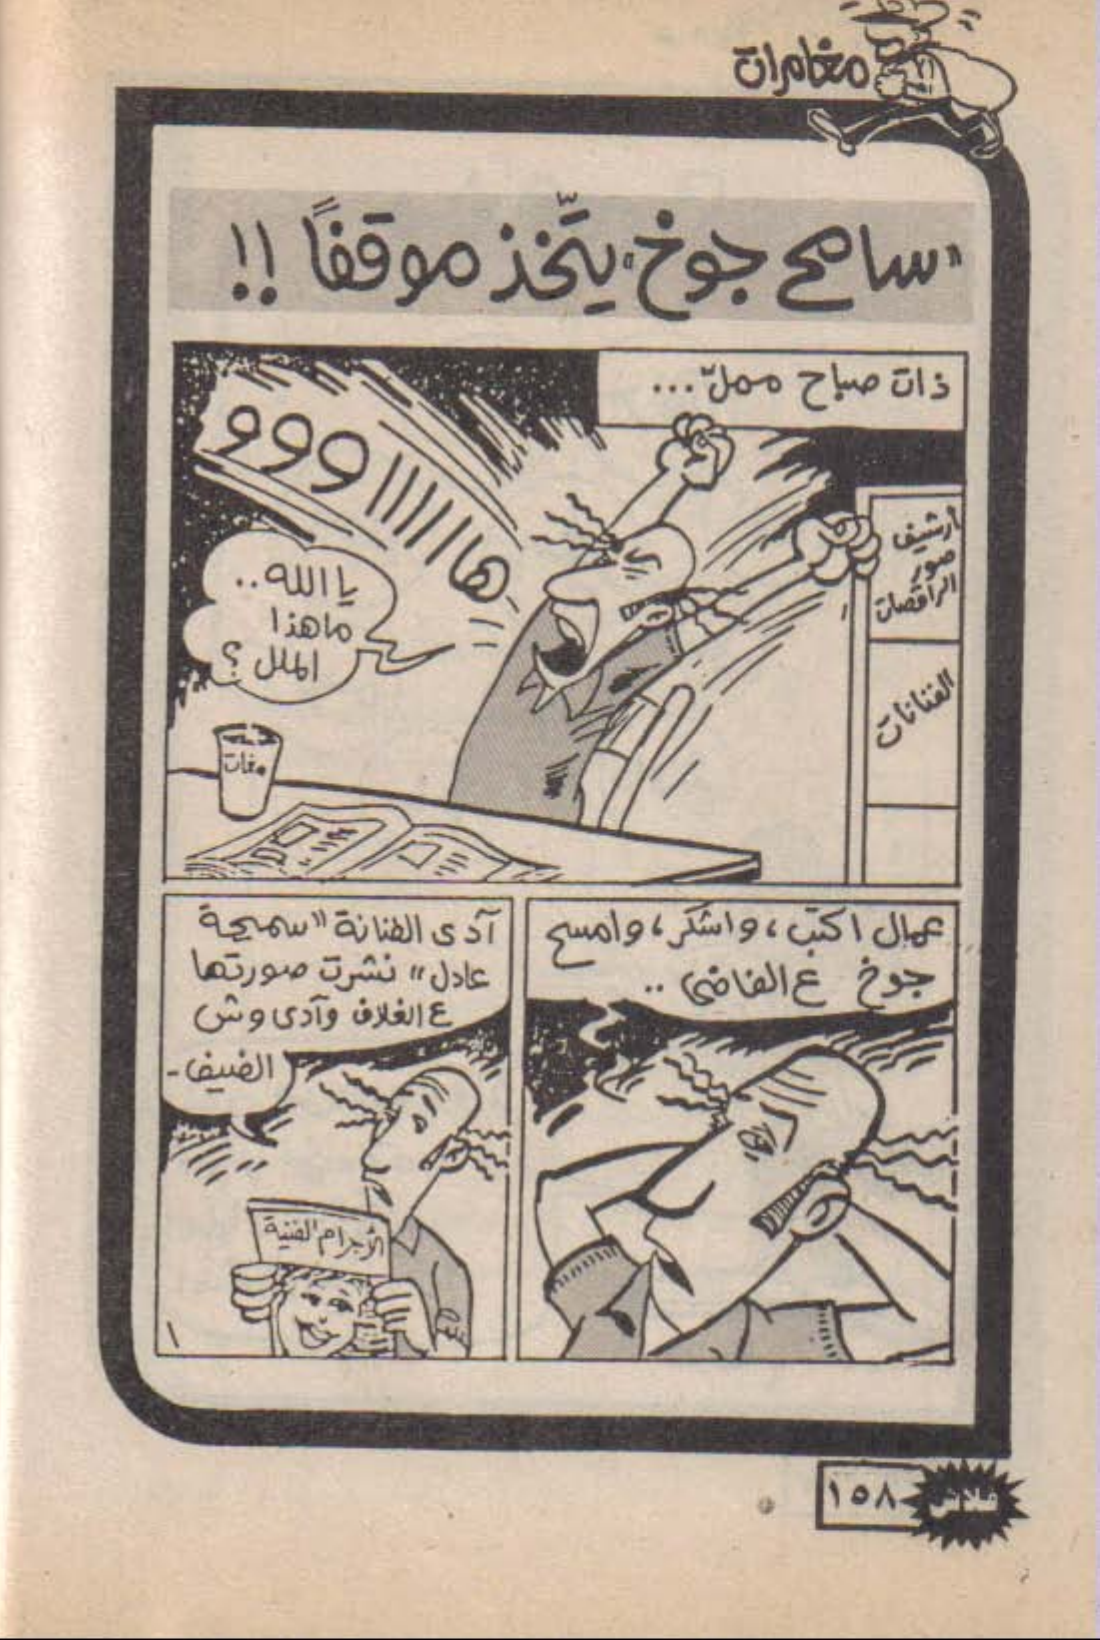 مغامرات
"سامح جوخ" يتّخذ موقفاً !!
ذات صباح مملّ...
هااااااووو
يا الله..
ما هذا
الملل ؟
أرشيف
صور
الراقصات
الفنانات
مغات
عمال اكتب، واشكر، وامسح
جوخ ع الفاضى ..
آدى الفنانة "سميحة
عادل" نشرت صورتها
ع الغلاف وآدى وش
الضيف -
الأجرام الفنية
١
١٥٨
فلاش